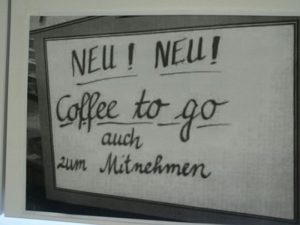 NEU! NEU!
Coffee to go
auch
zum Mitnehmen